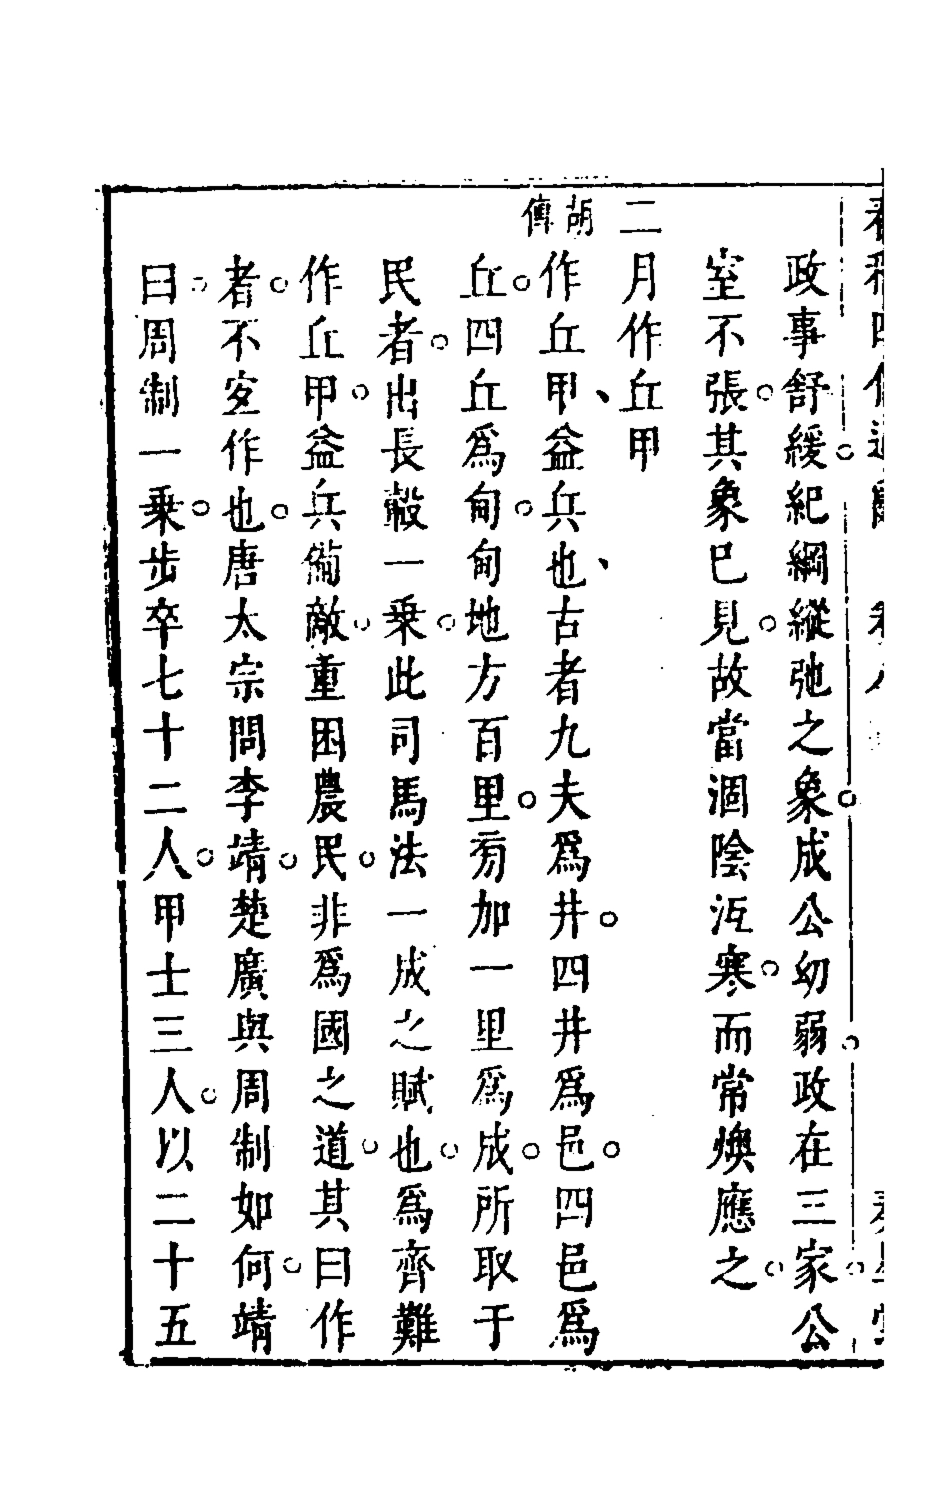 春秋四傳通辭 卷八
政事舒緩紀綱縱弛之象成公幼弱政在三家公
室不張其象巳見故當涸陰沍寒而常燠應之
二月作丘甲
胡傳
作丘甲益兵也古者九夫爲井四井爲邑四邑爲
丘四丘爲甸甸地方百里旁加一里爲成所取于
民者出長轂一乗此司馬法一成之賦也爲齊難
作丘甲益兵備敵重困農民非爲國之道其曰作
者不宐作也唐太宗問李靖楚廣與周制如何靖
曰周制一乗步卒七十二人甲士三人以二十五